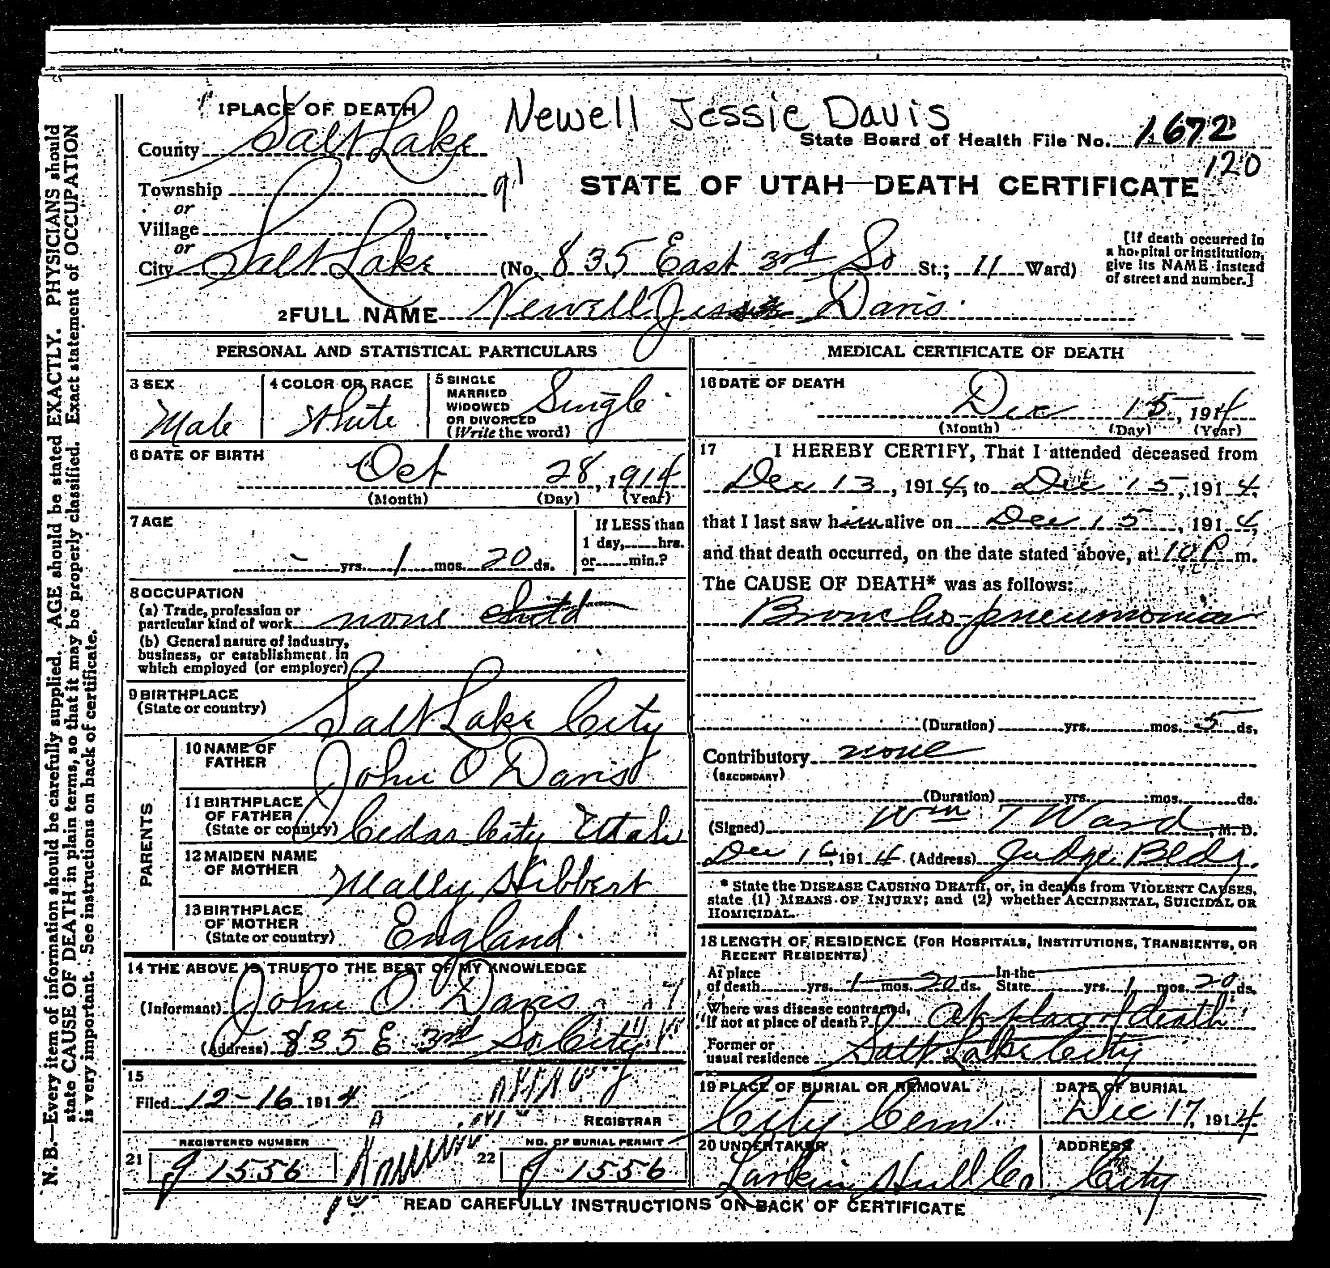 1 PLACE OF DEATH
Newell Jessie Davis
County Salt Lake
State Board of Health File No. 1672
120
Township
91
STATE OF UTAH—DEATH CERTIFICATE
or
Village
or
City Salt Lake (No. 835 East 3rd So St.; 11 Ward)
[If death occurred in a hospital or institution, give its NAME instead of street and number.]
2 FULL NAME Newell Jessie Davis
PERSONAL AND STATISTICAL PARTICULARS
3 SEX
Male
4 COLOR OR RACE
White
5 SINGLE MARRIED WIDOWED OR DIVORCED (Write the word)
Single
6 DATE OF BIRTH
Oct 28, 1914
(Month) (Day) (Year)
7 AGE
- yrs. 1 mos. 20 ds.
If LESS than 1 day, hrs. or min.?
8 OCCUPATION
(a) Trade, profession or particular kind of work none child
(b) General nature of Industry, business, or establishment in which employed (or employer)
9 BIRTHPLACE
(State or country)
Salt Lake City
PARENTS
10 NAME OF FATHER
John O Davis
11 BIRTHPLACE OF FATHER (State or country)
Cedar City Utah
12 MAIDEN NAME OF MOTHER
Mally Hibbert
13 BIRTHPLACE OF MOTHER (State or country)
England
14 THE ABOVE IS TRUE TO THE BEST OF MY KNOWLEDGE
(Informant) John O Davis
(Address) 835 E 3rd So City
15
Filed 12-16 1914
REGISTRAR
21 REGISTERED NUMBER
J 1556
22 NO. OF BURIAL PERMIT
J 1556
MEDICAL CERTIFICATE OF DEATH
16 DATE OF DEATH
Dec 15, 1914
(Month) (Day) (Year)
17 I HEREBY CERTIFY, That I attended deceased from
Dec 13, 1914, to Dec 15, 1914,
that I last saw him alive on Dec 15, 1914,
and that death occurred, on the date stated above, at 10 P m.
The CAUSE OF DEATH* was as follows:
Broncho pneumonia
(Duration) yrs. mos. 5 ds.
Contributory none
(SECONDARY)
(Duration) yrs. mos. ds.
(Signed) Wm T Ward, M. D.
Dec 16, 1914 (Address) Judge Bldg.
* State the DISEASE CAUSING DEATH, or, in deaths from VIOLENT CAUSES,
state (1) MEANS OF INJURY; and (2) whether ACCIDENTAL, SUICIDAL OR
HOMICIDAL.
18 LENGTH OF RESIDENCE (FOR HOSPITALS, INSTITUTIONS, TRANSIENTS, OR
RECENT RESIDENTS)
At place of death yrs. 1 mos. 20 ds. In the State yrs. 1 mos. 20 ds.
Where was disease contracted, If not at place of death? at place of death
Former or usual residence Salt Lake City
19 PLACE OF BURIAL OR REMOVAL
City Cem.
DATE OF BURIAL
Dec 17, 1914
20 UNDERTAKER
Larkin Hull Co
ADDRESS
City
READ CAREFULLY INSTRUCTIONS ON BACK OF CERTIFICATE
N. B.—Every item of information should be carefully supplied. AGE should be stated EXACTLY. PHYSICIANS should
state CAUSE OF DEATH in plain terms, so that it may be properly classified. Exact statement of OCCUPATION
is very important. See instructions on back of certificate.